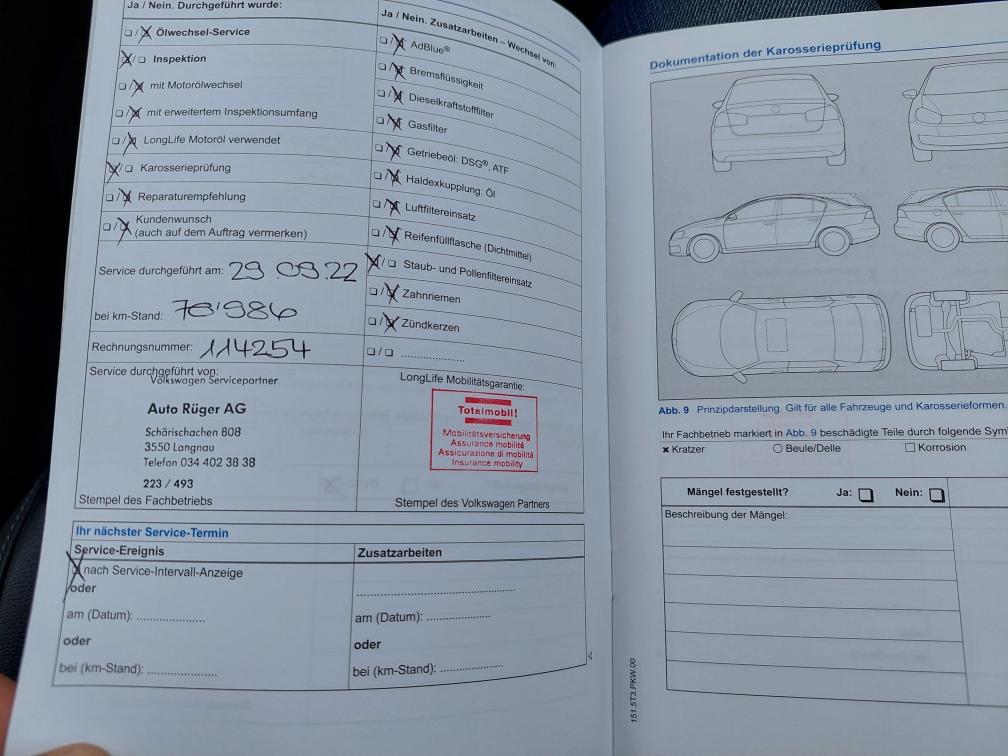 Ja / Nein. Durchgeführt wurde:
❑ / ❑ Ölwechsel-Service
❑ / ❑ Inspektion
❑ / ❑ mit Motorölwechsel
❑ / ❑ mit erweitertem Inspektionsumfang
❑ / ❑ LongLife Motoröl verwendet
❑ / ❑ Karosserieprüfung
❑ / ❑ Reparaturempfehlung
❑ / ❑ Kundenwunsch
(auch auf dem Auftrag vermerken)
Service durchgeführt am: 29 09.22
bei km-Stand: 78'986
Rechnungsnummer: 114254
Service durchgeführt von:
Volkswagen Servicepartner
Auto Rüger AG
Schärischachen 808
3550 Langnau
Telefon 034 402 38 38
223 / 493
Stempel des Fachbetriebs
Ja / Nein. Zusatzarbeiten – Wechsel von:
❑ / ❑ AdBlue®
❑ / ❑ Bremsflüssigkeit
❑ / ❑ Dieselkraftstofffilter
❑ / ❑ Gasfilter
❑ / ❑ Getriebeöl: DSG®, ATF
❑ / ❑ Haldexkupplung: Öl
❑ / ❑ Luftfiltereinsatz
❑ / ❑ Reifenfüllflasche (Dichtmittel)
❑ / ❑ Staub- und Pollenfiltereinsatz
❑ / ❑ Zahnriemen
❑ / ❑ Zündkerzen
❑ / ❑ ......................
LongLife Mobilitätsgarantie:
Totalmobil!
Mobilitätsversicherung
Assurance mobilité
Assicurazione di mobilità
Insurance mobility
Stempel des Volkswagen Partners
Ihr nächster Service-Termin
Service-Ereignis
nach Service-Intervall-Anzeige
oder
am (Datum): ......................
oder
bei (km-Stand): ......................
Zusatzarbeiten
..................................................
am (Datum): ......................
oder
bei (km-Stand): ......................
Dokumentation der Karosserieprüfung
Abb. 9 Prinzipdarstellung. Gilt für alle Fahrzeuge und Karosserieformen.
Ihr Fachbetrieb markiert in Abb. 9 beschädigte Teile durch folgende Sym
× Kratzer ○ Beule/Delle □ Korrosion
Mängel festgestellt? Ja: ❑ Nein: ❑
Beschreibung der Mängel:
151.5T3.PKW.00